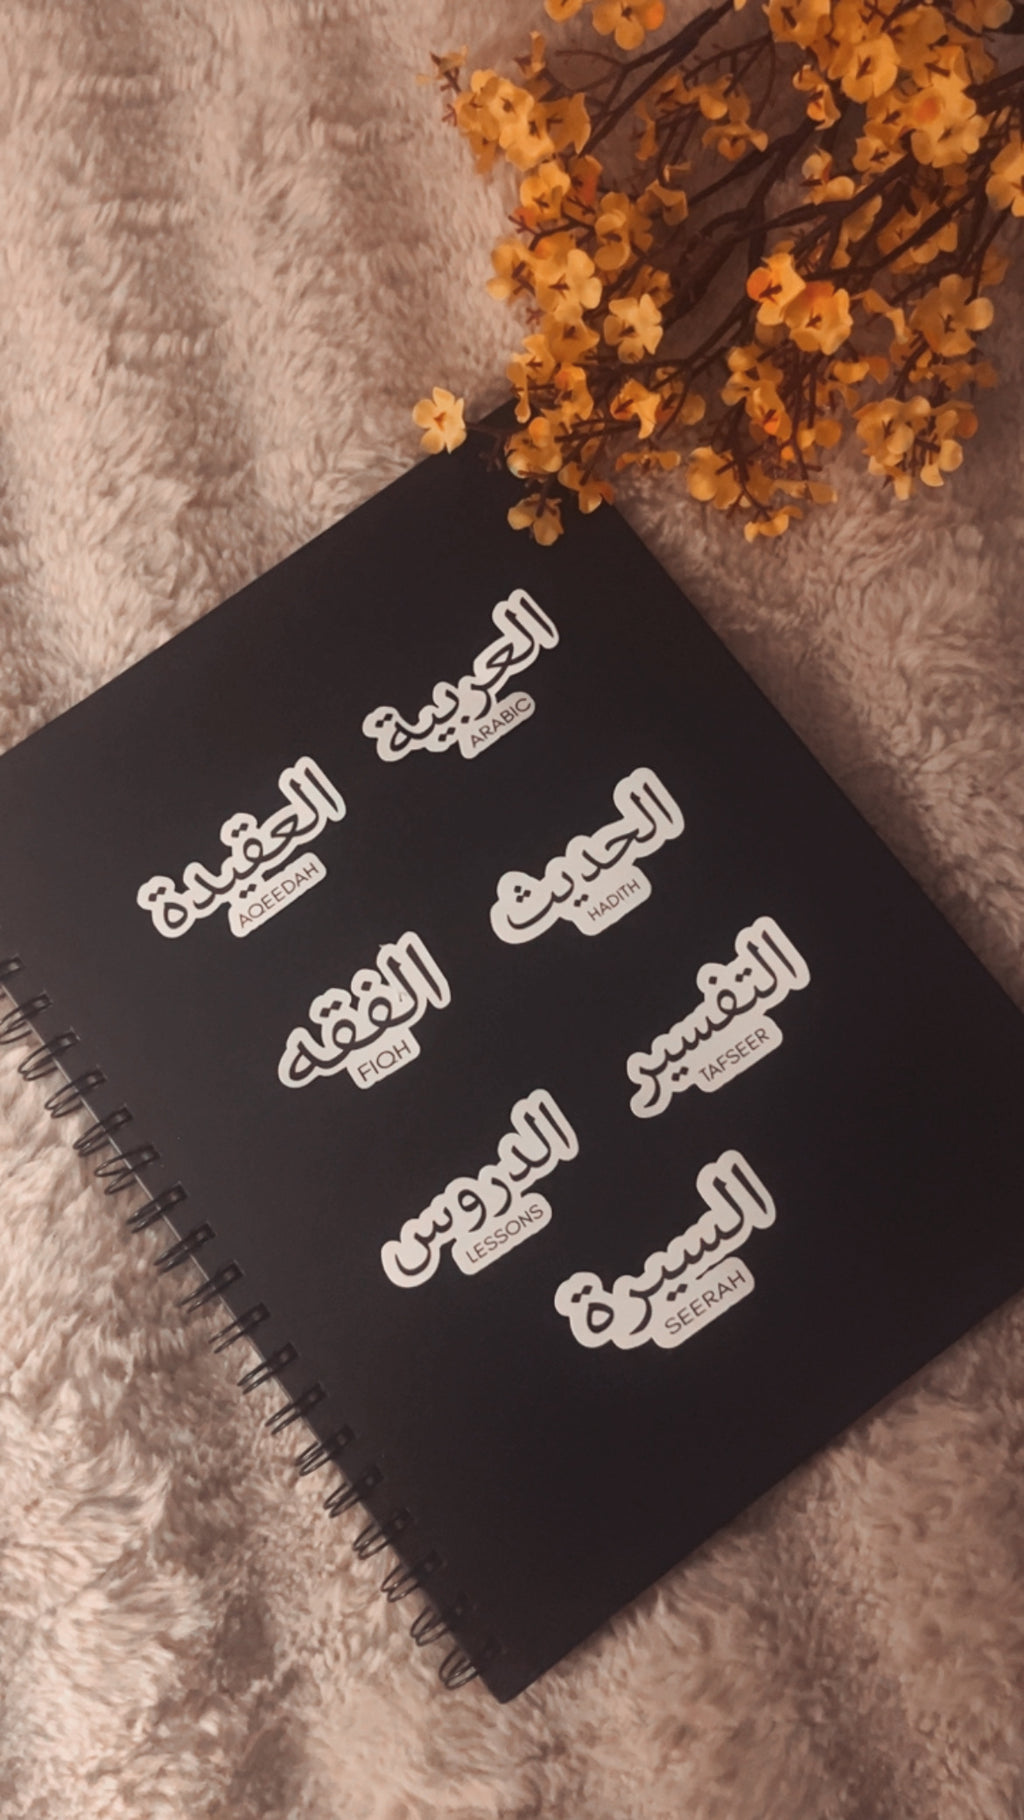 العربية
ARABIC
العقيدة
AQEEDAH
الحديث
HADITH
الفقه
FIQH
التفسير
TAFSEER
الدروس
LESSONS
السيرة
SEERAH